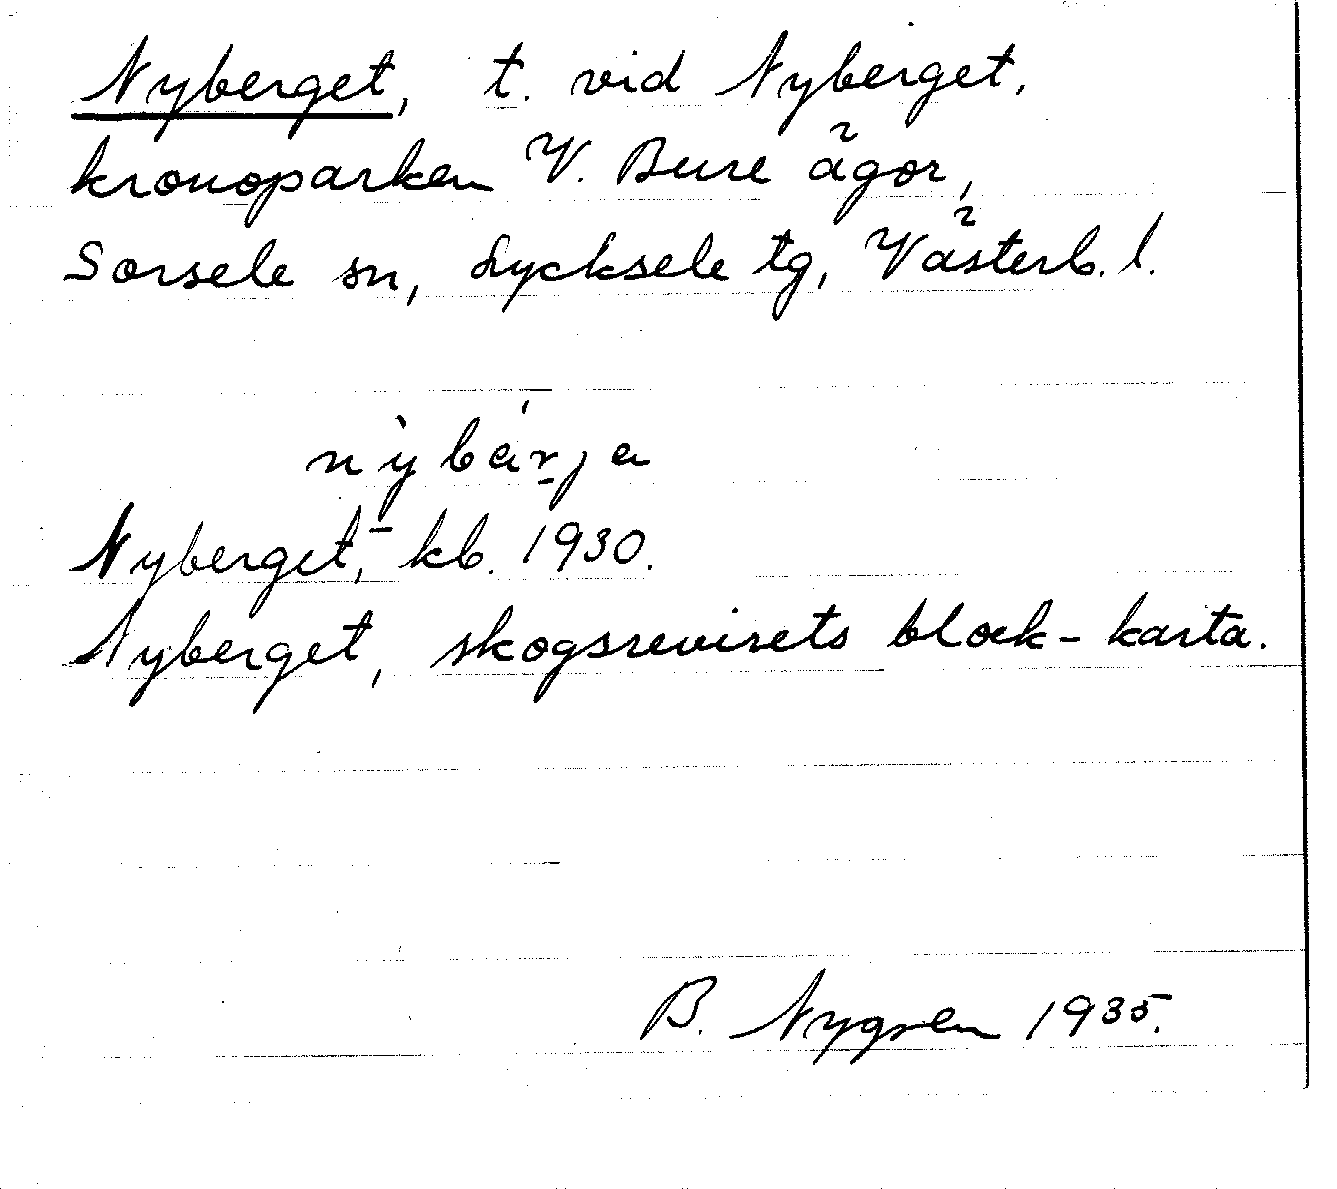 Nyberget, t. vid Nyberget,
kronoparken V. Bure ägor,
Sorsele sn, Lycksele tg, Västerb. l.
nỳbárja
Nyberget, kb. 1930.
Nyberget, skogsrevisets block-karta.
B. Nygren 1935.